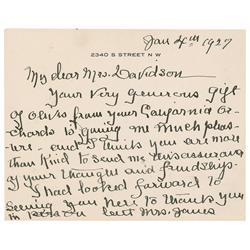 Jan 4th 1927
2340 S STREET N W
My dear Mrs. Davidson
Your very generous gift
of olives from your California Or-
chards is giving me much pleas-
ure - and I think you are more
than kind to send me this assurance
of your thought and friendship-
I had looked forward to
seeing you here to thank you
in person but Mrs. James